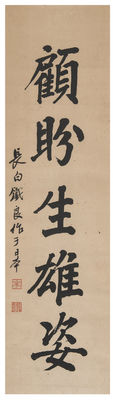 顧盼生雄姿
長白鐵良作于日本